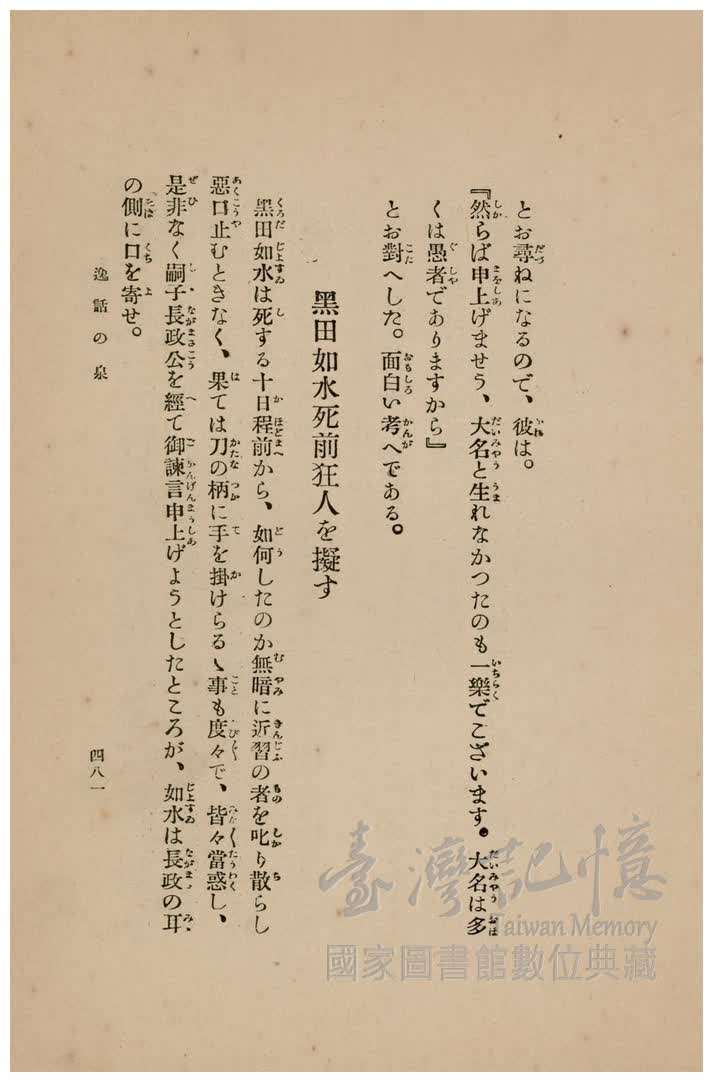 とお尋ねになるので、彼は。
『然らば申上げませう、大名と生れなかつたのも一樂でございます。大名は多
くは愚者でありますから』
とお對へした。面白い考へである。
黑田如水死前狂人を擬す
黑田如水は死する十日程前から、如何したのか無暗に近習の者を叱り散らし
惡口止むときなく、果ては刀の柄に手を掛けらるゝ事も度々で、皆々當惑し、
是非なく嗣子長政公を經て御諫言申上げようとしたところが、如水は長政の耳
の側に口を寄せ。
逸話の泉
四八一
臺灣記憶
Taiwan Memory
國家圖書館數位典藏